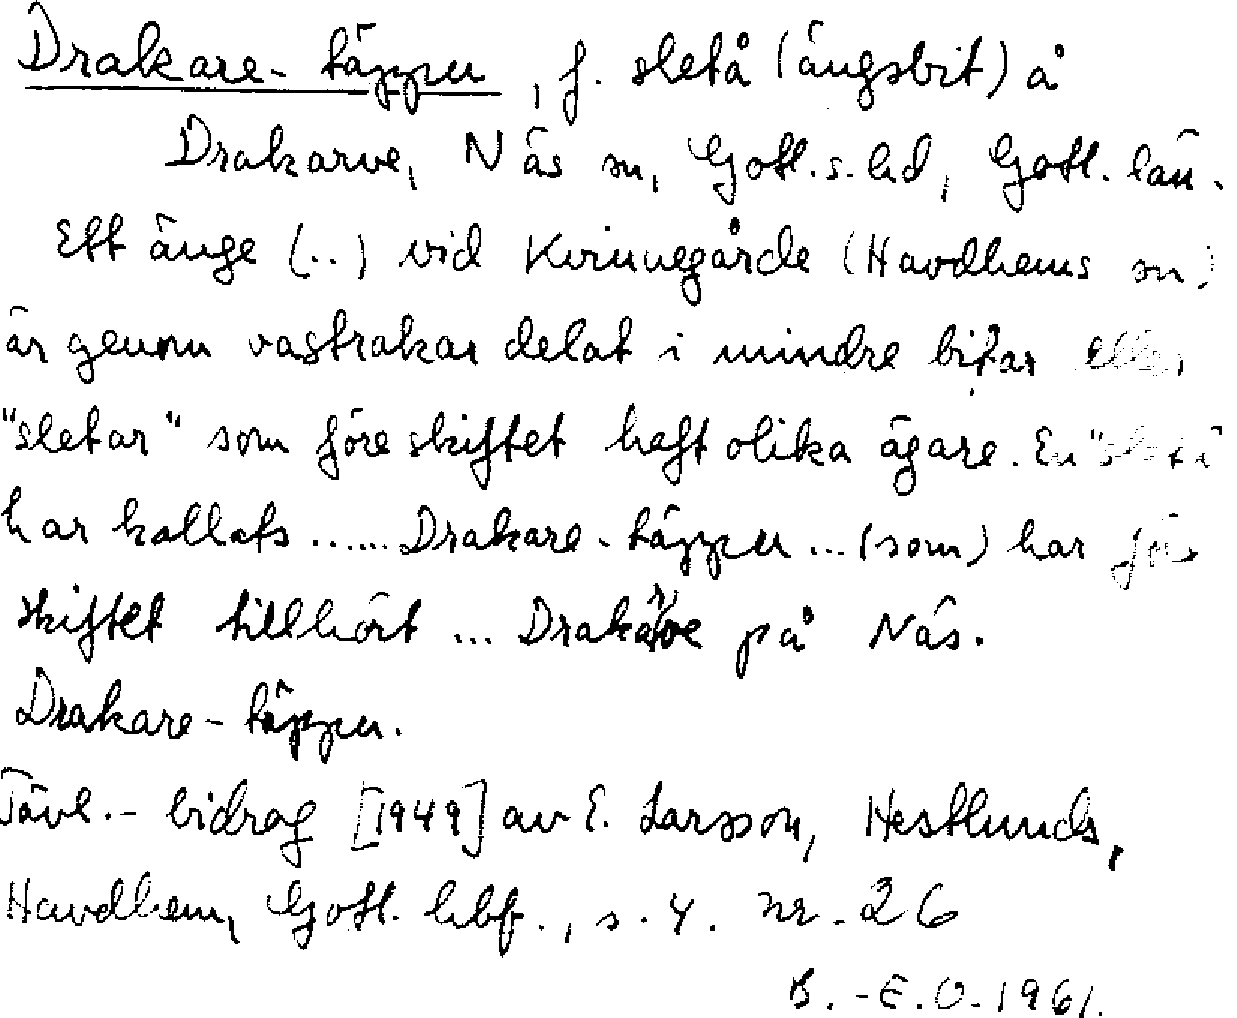 Drakare-täppu, f. sletå (ängsbit) å
Drakarve, Näs sn, Gotl. s. hd, Gotl. län.
Ett änge (..) vid Kvinnegårde (Havdhems sn)
är genom vastrakar delat i mindre bitar eller
"sletar" som före skiftet haft olika ägare. En
har kallats ...... Drakare-täppu ... (som) har före
skiftet tillhört ... Drakarve på Näs.
Drakare-täppu.
Tävl.-bidrag [1949] av E. Larsson, Hestlunds,
Havdhem, Gotl. hbf., s. 4. nr. 26
B.-E.O. 1961.